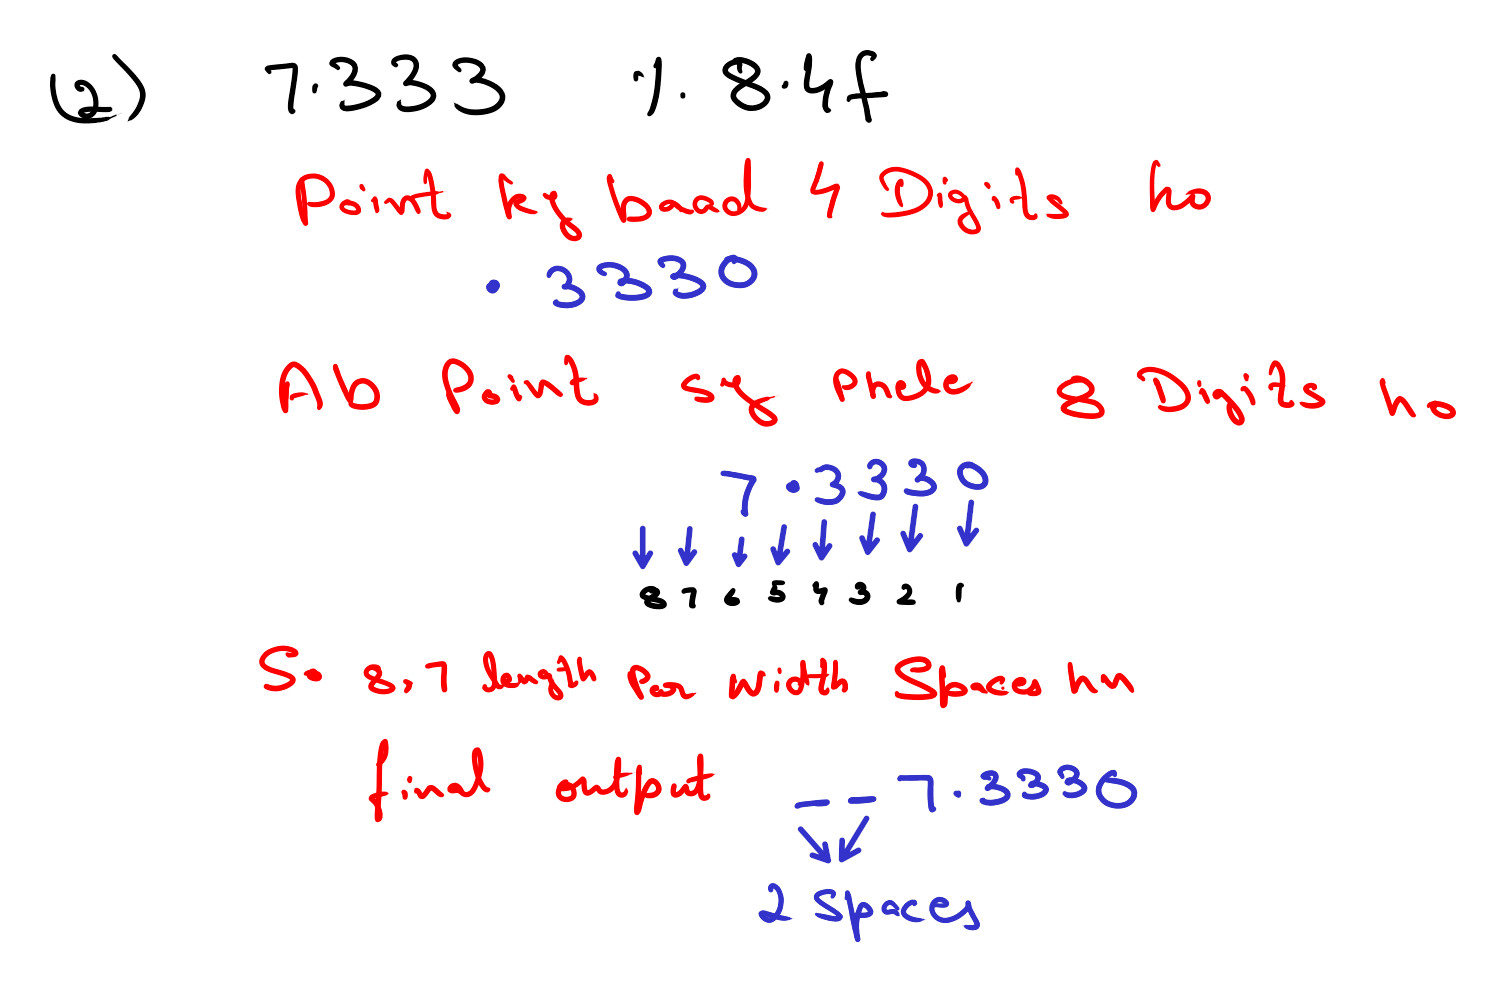 (2) 7.333 %. 8.4f
Point ky baad 4 Digits ho
. 3330
Ab Point sy phele 8 Digits ho
7.3330
8 7 6 5 4 3 2 1
So 8,7 length par width Spaces hn
final output _ _ 7.3330
2 Spaces